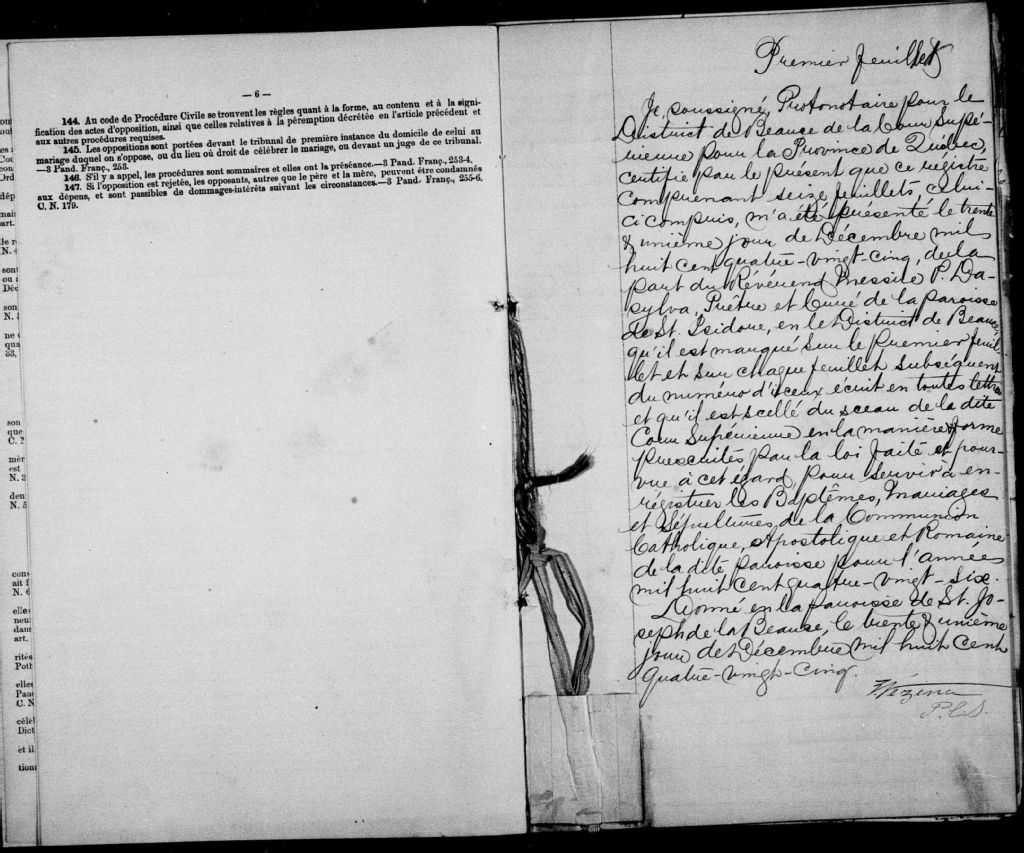 — 6 —
144. Au code de Procédure Civile se trouvent les règles quant à la forme, au contenu et à la signi-
fication des actes d'opposition, ainsi que celles relatives à la péremption décrétée en l'article précédent et
aux autres procédures requises.
145. Les oppositions sont portées devant le tribunal de première instance du domicile de celui au
mariage duquel on s'oppose, ou du lieu où droit de célébrer le mariage, ou devant un juge de ce tribunal.
—3 Pand. Franç., 253.
146. S'il y a appel, les procédures sont sommaires et elles ont la préséance.—3 Pand. Franç., 253-4.
147. Si l'opposition est rejetée, les opposants, autres que le père et la mère, peuvent être condamnés
aux dépens, et sont passibles de dommages-intérêts suivant les circonstances.—3 Pand. Franç., 255-6.
C. N. 179.
Premier feuillet
Je, soussigné, Protonotaire pour le
District de Beauce de la Cour Supé-
rieure pour la Province de Québec,
certifie par le présent que ce régistre
comprenant seize feuillets celui-
ci compris, m'a été présenté le trente
& unième jour de Décembre mil
huit cent quatre-vingt-cinq, de la
part du Révérend Messire P. Da-
sylva, Prêtre et Curé de la paroisse
de St. Isidore, en le District de Beauce,
qu'il est marqué sur le premier feuil
let et sur chaque feuillet subséquent
du numéro d'iceux écrit en toutes lettres
et qu'il est scellé du sceau de la dite
Cour Supérieure en la manière & forme
prescrites par la loi faite et pour-
vue à cet égard, pour servir à en-
régistrer les Baptêmes, Mariages
et Sépultures de la Communion
Catholique, Apostolique et Romaine
de la dite paroisse pour l'année
mil huit cent quatre-vingt-six.
Donné en la paroisse de St. Jo-
seph de la Beauce, le trente & unième
jour de Décembre mil huit cent
quatre-vingt-cinq.
Vézina
P.C.S.